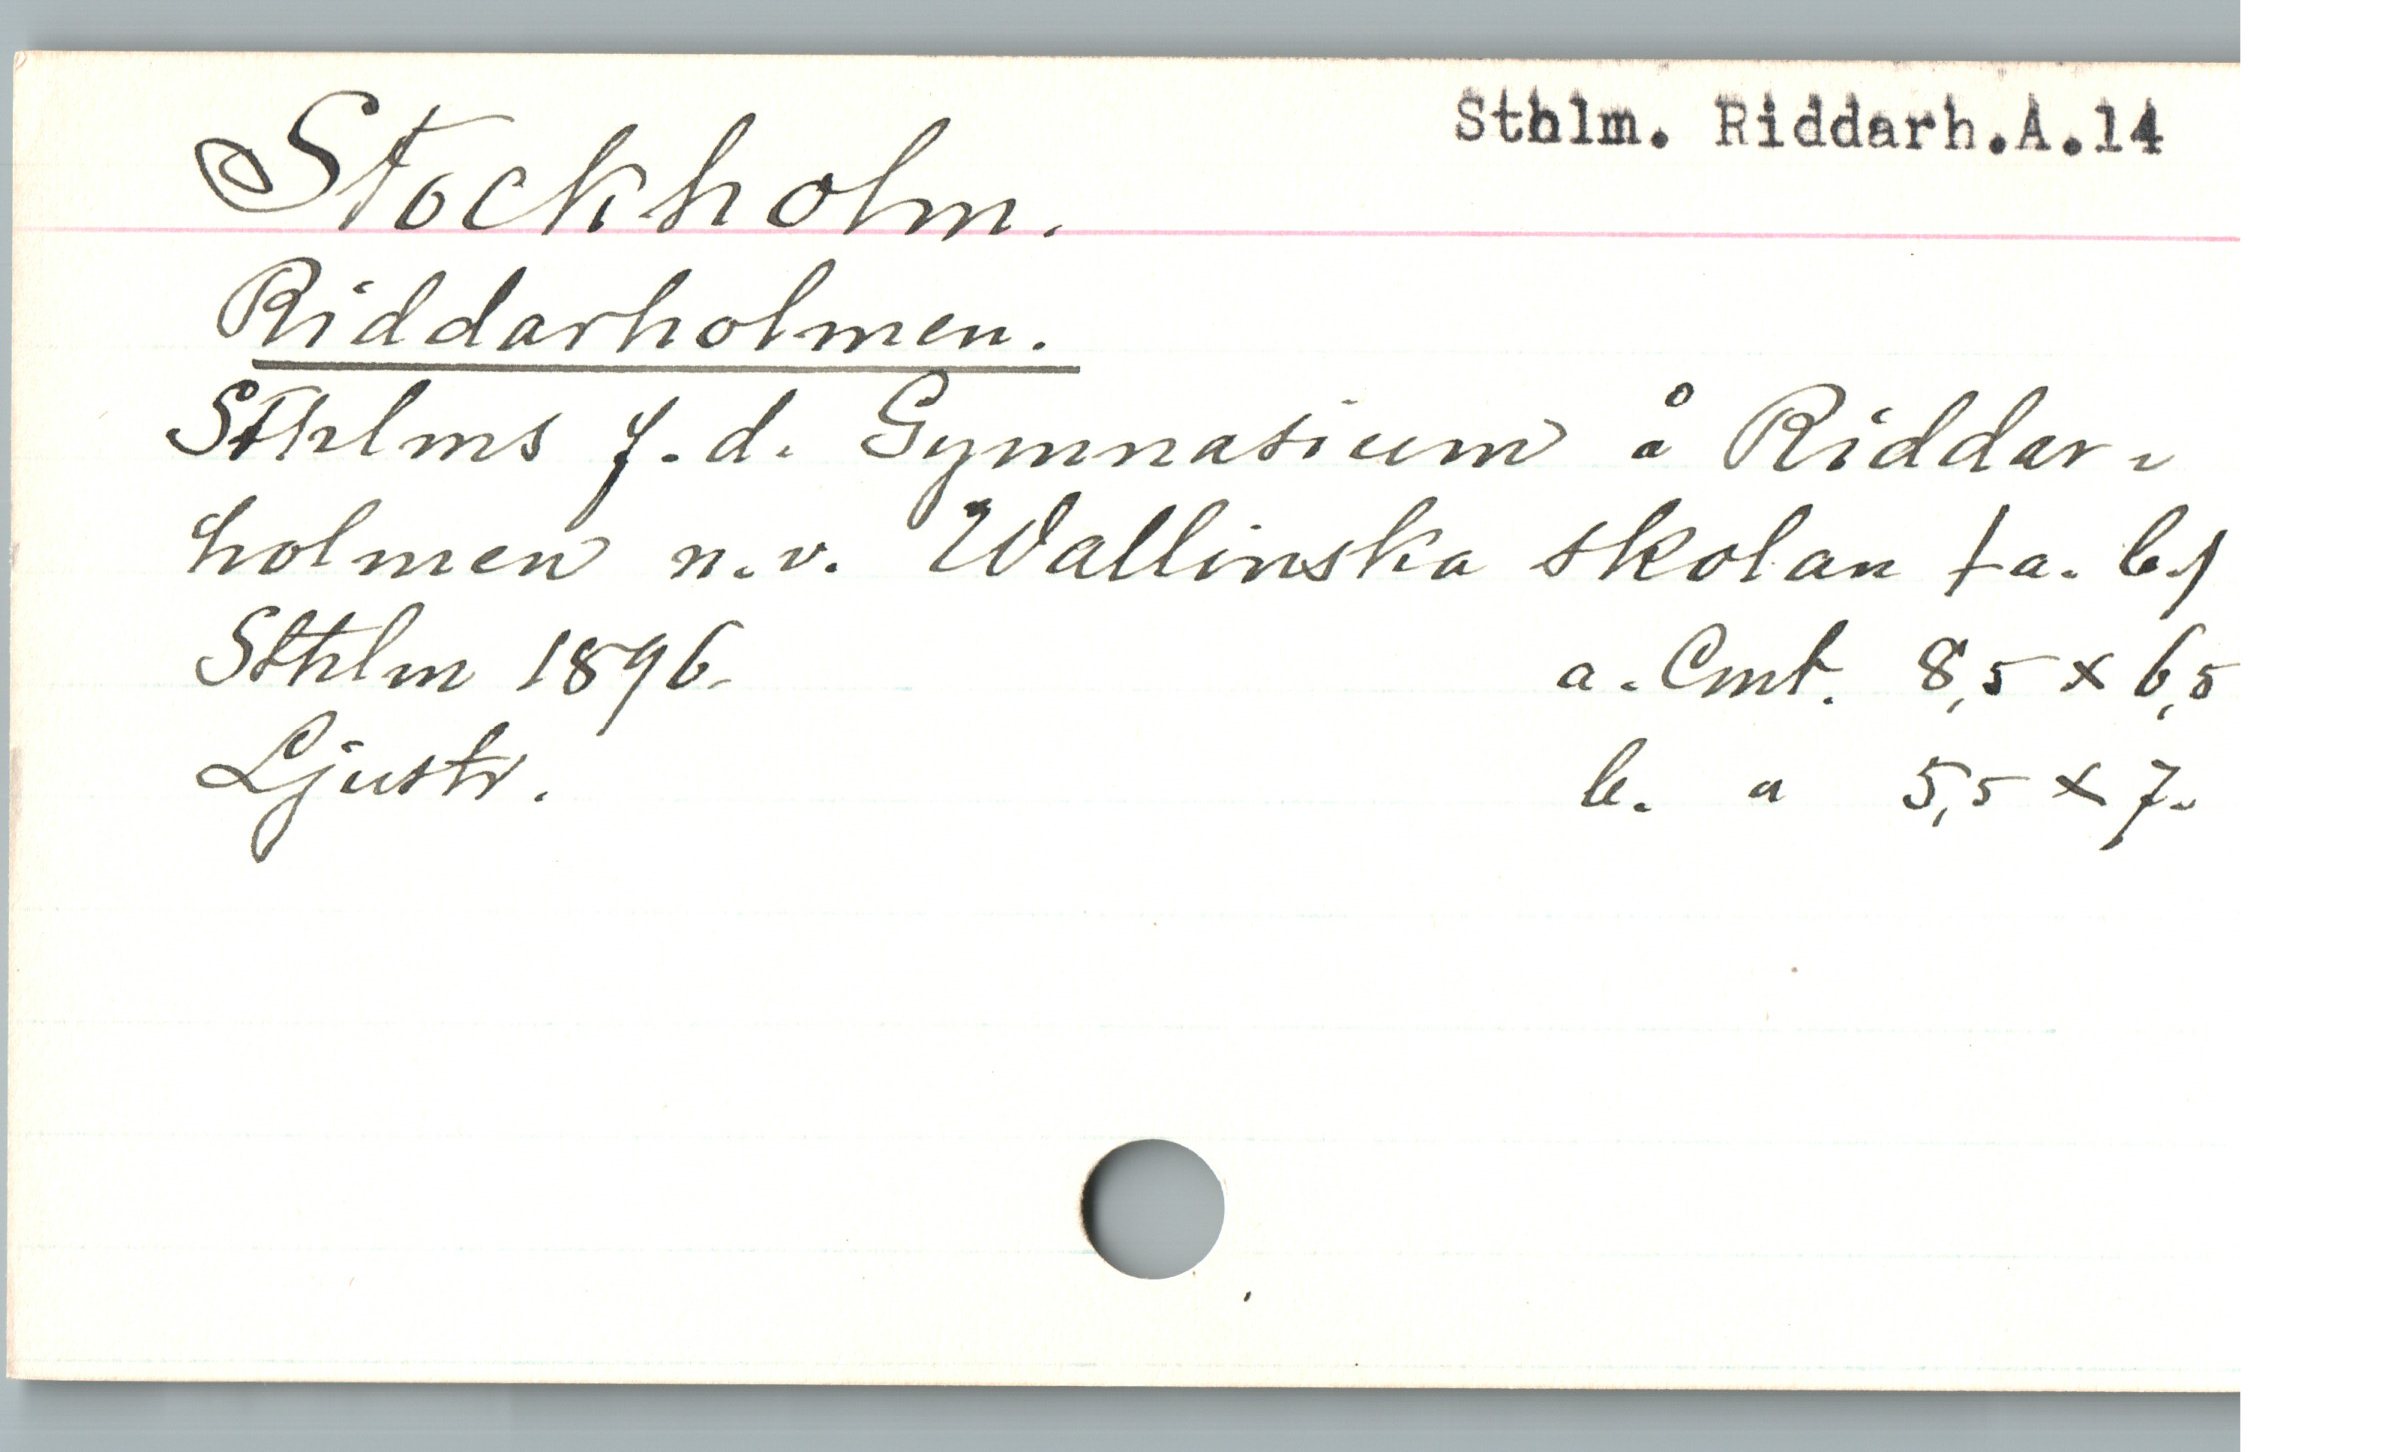 Sthlm. Riddarh.A.14
Stockholm.
Riddarholmen.
Sthlms f.d. Gymnasium å Riddar-
holmen n.v. Wallinska skolan (a. b.)
Sthlm 1896. a. Cmt. 8,5 x 6,5
Ljustr. b. " 5,5 x 7.